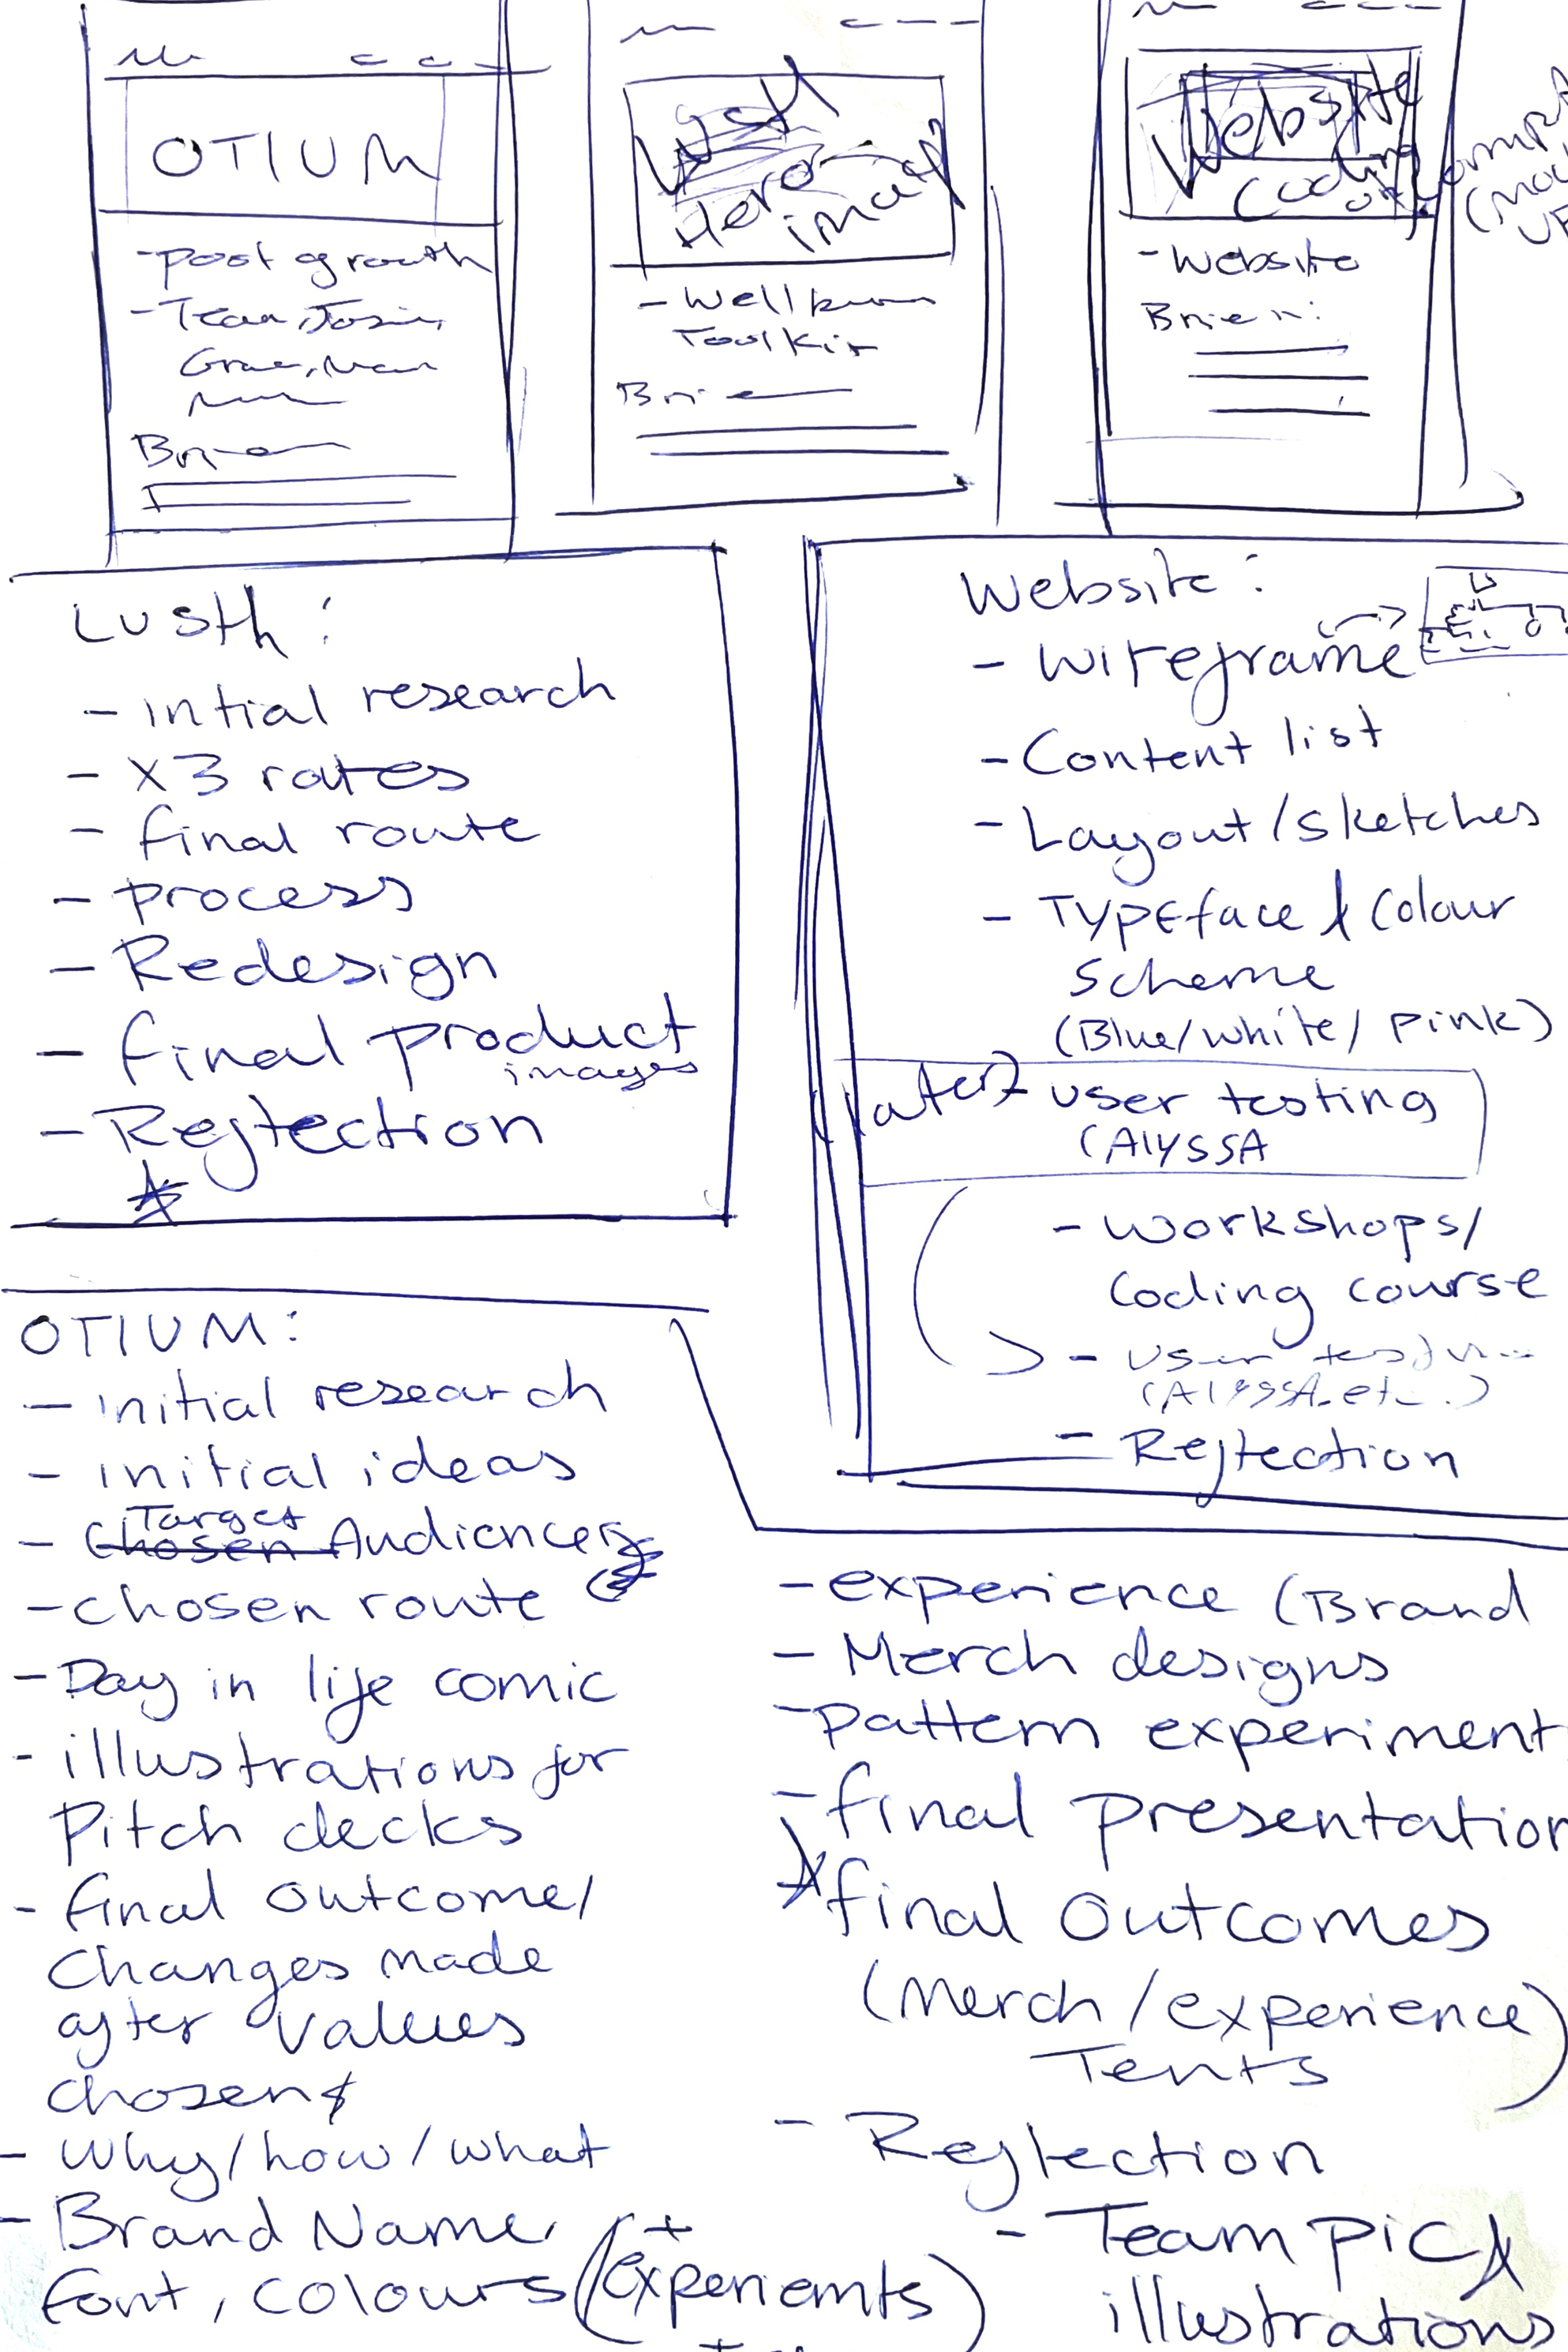 OTIUM
- post growth
- Team, Josie,
Brie
Lush
Hero
image
- Wellbeing
Toolkit
Brie
Website
Coding
- Website
Brief:
LUSth:
- intial research
- X3 rates
- final route
- process
- Redesign
- final product
images
- Reflection
Website:
- wireframe
- Content list
- Layout/sketches
- TYPEface & Colour
Scheme
(Blue/white/ pink)
later? user testing
(AlYSSA
- workshops/
Coding course
- User testing
(AlYSSA. etc..)
- Reflection
OTIUM:
- initial research
- initial ideas
Target
- Chosen Audience
- chosen route
- Day in life comic
- illustrations for
Pitch decks
- final outcome/
Changes made
after values
chosen
- Why/how/what
- Brand Name,
font, colours (experiemts)
- experience (Brand
- Merch designs
- pattern experiment
- final presentation
- final outcomes
(Merch/experience)
Tents
- Reflection
- Team pic &
illustrations